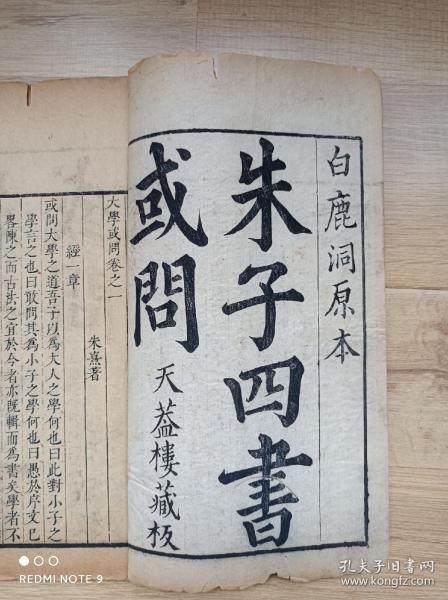 白鹿洞原本
朱子四書
或問
天葢樓藏板
大學或問卷之一
朱熹著
經一章
或問大學之道吾子以爲大人之學何也曰此對小子之
學言之也曰敢問其爲小子之學何也曰愚於序文已
畧陳之而古法之宜於今者亦旣輯而爲書矣學者不
REDMI NOTE 9
孔夫子旧书网
www.kongfz.com